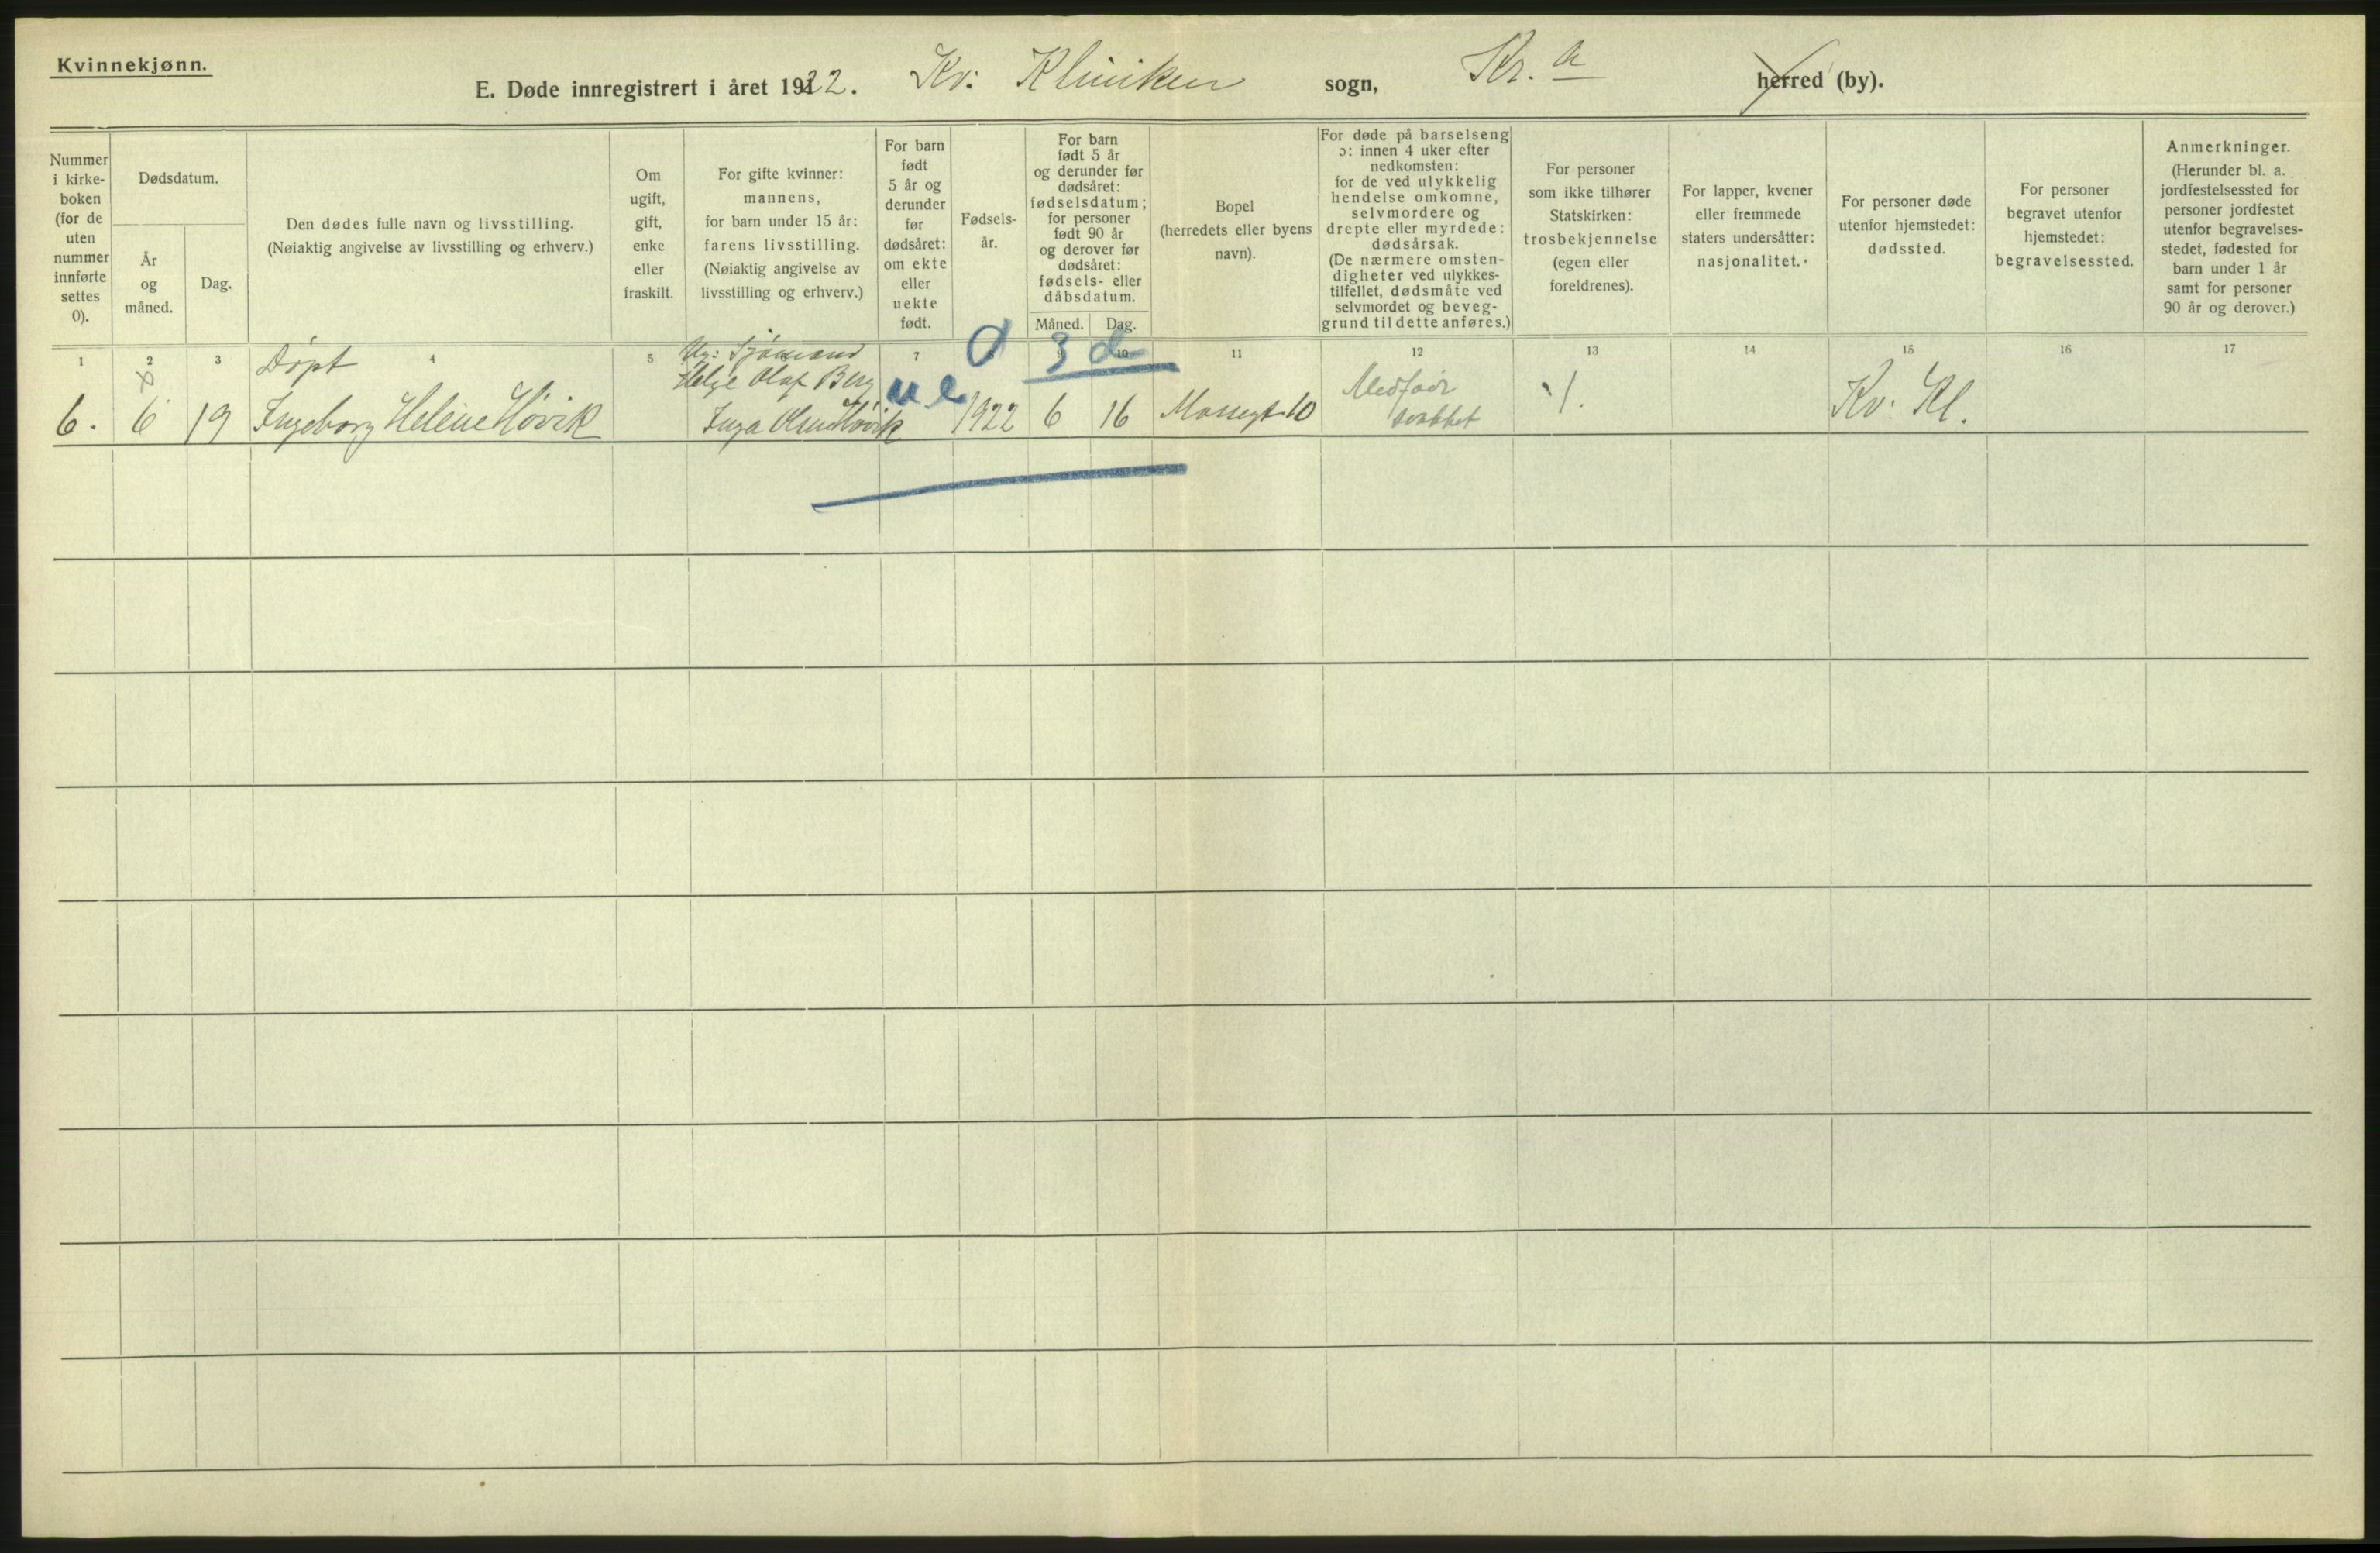 Kvinnekjønn.
E. Døde innregistrert i året 1922. Kv: Kliniken sogn, Kr.a herred (by).
Nummer i kirke- boken (for de uten nummer innførte settes 0).
Dødsdatum.
År og måned.
Dag.
Den dødes fulle navn og livsstilling.
(Nøiaktig angivelse av livsstilling og erhverv.)
Om ugift, gift, enke eller fraskilt.
For gifte kvinner: mannens, for barn under 15 år: farens livsstilling. (Nøiaktig angivelse av livsstilling og erhverv.)
For barn født 5 år og derunder før dødsåret: om ekte eller uekte født.
Fødsels- år.
For barn født 5 år og derunder før dødsåret: fødselsdatum; for personer født 90 år og derover før dødsåret: fødsels- eller dåbsdatum.
Måned. Dag.
Bopel (herredets eller byens navn).
For døde på barselseng ɔ: innen 4 uker efter nedkomsten: for de ved ulykkelig hendelse omkomne, selvmordere og drepte eller myrdede: dødsårsak. (De nærmere omsten- digheter ved ulykkes- tilfellet, dødsmåte ved selvmordet og beveg- grund til dette anføres.)
For personer som ikke tilhører Statskirken: trosbekjennelse (egen eller foreldrenes).
For lapper, kvener eller fremmede staters undersåtter: nasjonalitet.
For personer døde utenfor hjemstedet: dødssted.
For personer begravet utenfor hjemstedet: begravelsessted.
Anmerkninger. (Herunder bl. a. jordfestelsessted for personer jordfestet utenfor begravelses- stedet, fødested for barn under 1 år samt for personer 90 år og derover.)
1 2 3 4 5 7 9 10 11 12 13 14 15 16 17
Døpt
Ug: Sjømand
Helge Olaf Berg
0 3 d
ue
6. 6 19 Ingeborg Helene Høvik Inga Høvik 1922 6 16 Mossegt 10 Medfødt svakhet ./. Kv: Kl.